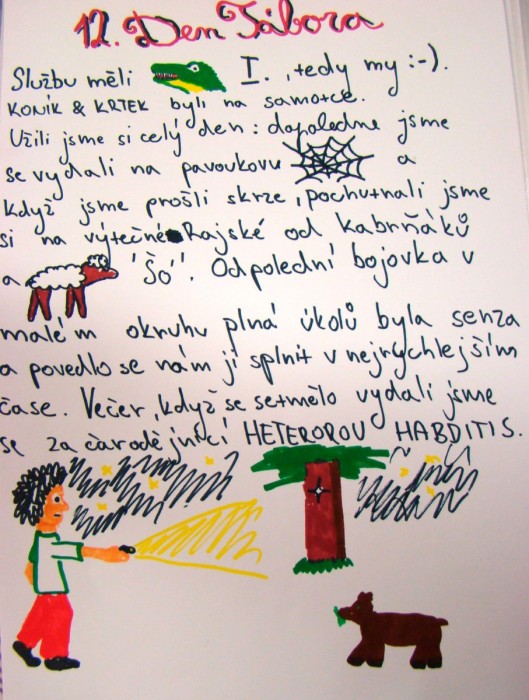 12. Den Tábora
Službu měli I. , tedy my :-).
KONÍK & KRTEK byli na samotce.
Užili jsme si celý den: dopoledne jsme
se vydali na pavoukovu a
když jsme prošli skrze, pochutnali jsme
si na výtečné Rajské od Kabrňáků
a "Šo". Odpolední bojovka v
malém okruhu plná úkolů byla senza
a povedlo se nám ji splnit v nejrychlejším
čase. Večer, když se setmělo vydali jsme
se za čarodějnicí HETEROROU HABDITIS.